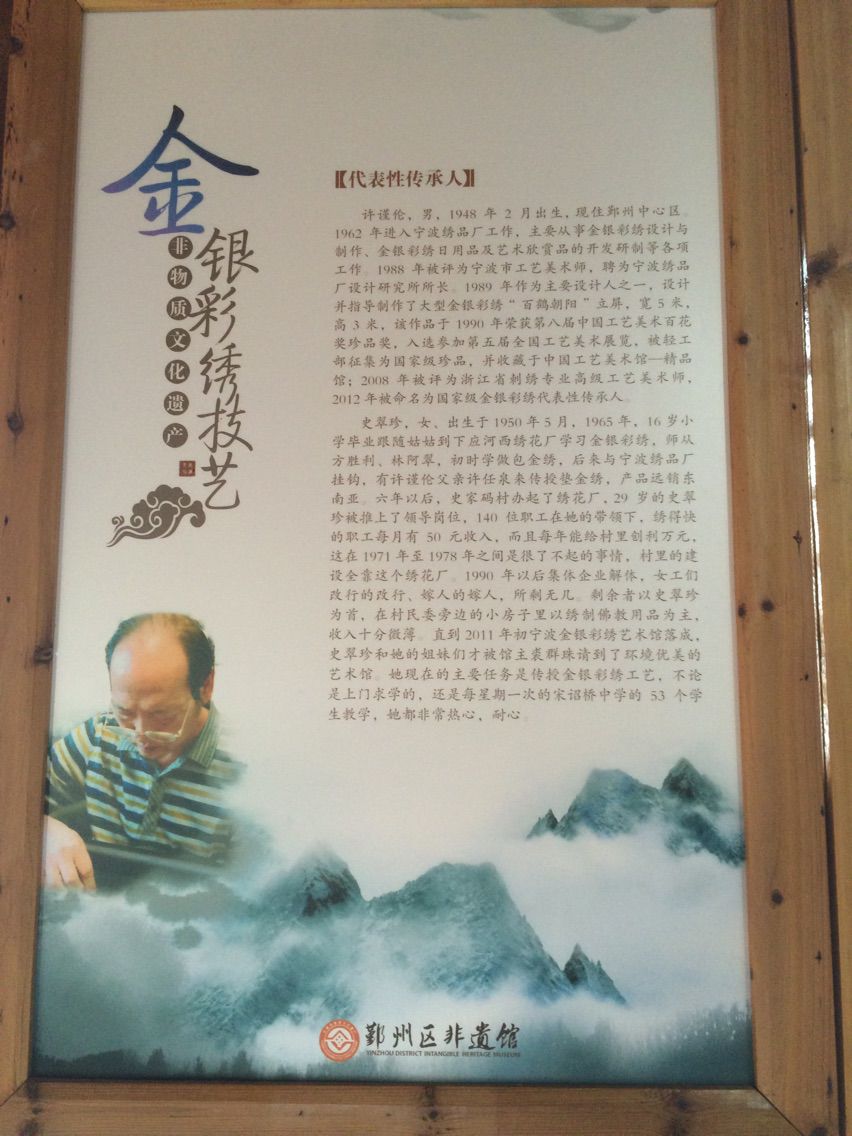 金银彩绣技艺
非物质文化遗产
【代表性传承人】
许谨伦，男，1948 年 2 月出生，现住鄞州中心区。
1962 年进入宁波绣品厂工作，主要从事金银彩绣设计与
制作、金银彩绣日用品及艺术欣赏品的开发研制等各项
工作。1988 年被评为宁波市工艺美术师，聘为宁波绣品
厂设计研究所所长。1989 年作为主要设计人之一，设计
并指导制作了大型金银彩绣“百鹤朝阳”立屏，宽 5 米，
高 3 米，该作品于 1990 年荣获第八届中国工艺美术百花
奖珍品奖，入选参加第五届全国工艺美术展览，被轻工
部征集为国家级珍品，并收藏于中国工艺美术馆—精品
馆；2008 年被评为浙江省刺绣专业高级工艺美术师，
2012年被命名为国家级金银彩绣代表性传承人。
史翠珍，女、出生于1950年5月，1965年，16岁小
学毕业跟随姑姑到下应河西绣花厂学习金银彩绣，师从
方胜利、林阿翠，初时学做包金绣，后来与宁波绣品厂
挂钩，有许谨伦父亲许任泉来传授垫金绣，产品远销东
南亚。六年以后，史家码村办起了绣花厂，29 岁的史翠
珍被推上了领导岗位，140 位职工在她的带领下，绣得快
的职工每月有 50 元收入，而且每年能给村里创利万元，
这在1971年至1978年之间是很了不起的事情，村里的建
设全靠这个绣花厂。1990 年以后集体企业解体，女工们
改行的改行、嫁人的嫁人，所剩无几。剩余者以史翠珍
为首，在村民委旁边的小房子里以绣制佛教用品为主，
收入十分微薄。直到2011年初宁波金银彩绣艺术馆落成，
史翠珍和她的姐妹们才被馆主裘群珠请到了环境优美的
艺术馆。她现在的主要任务是传授金银彩绣工艺，不论
是上门求学的，还是每星期一次的宋诏桥中学的 53 个学
生教学，她都非常热心，耐心。
鄞州区非遗馆
YINZHOU DISTRICT INTANGIBLE HERITAGE MUSEUM